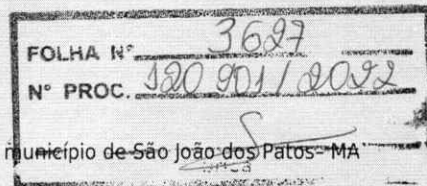 FOLHA N° 3627
N° PROC. 120 901/2022
município de São João dos Patos - MA